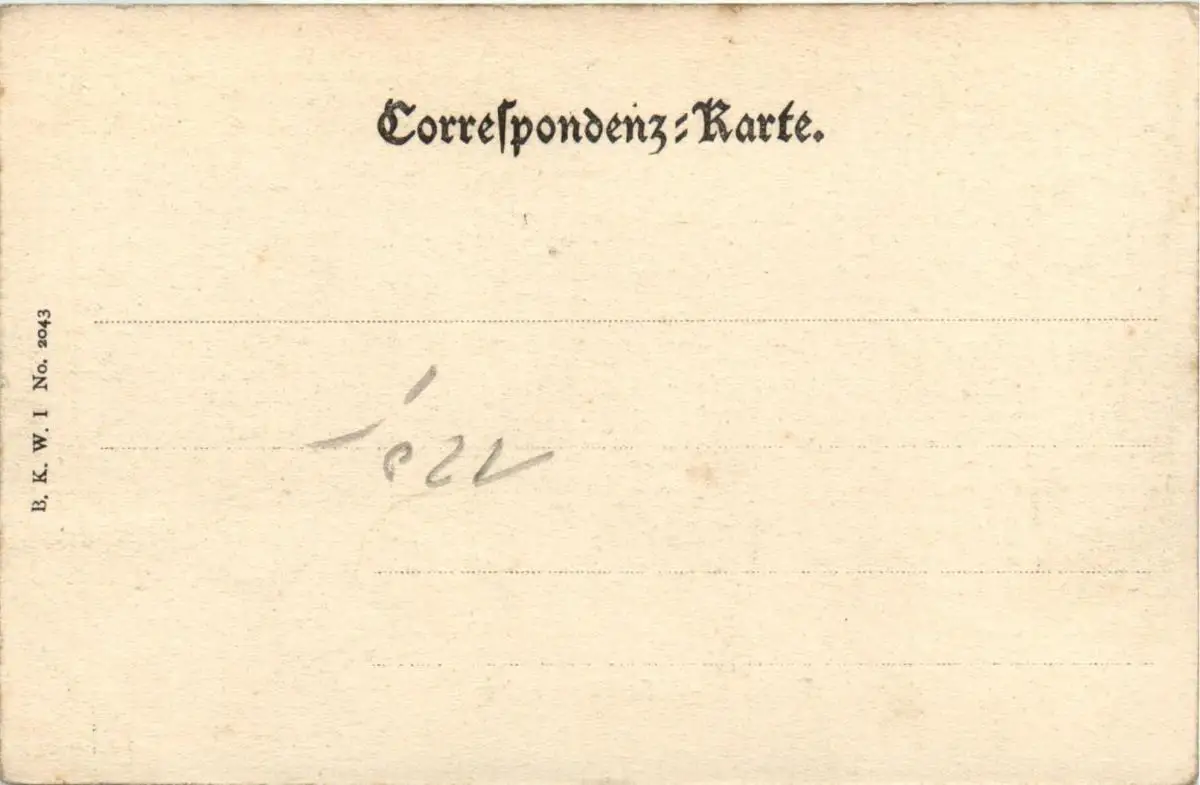 Correſpondenz-Karte.
B. K. W. I No. 2043